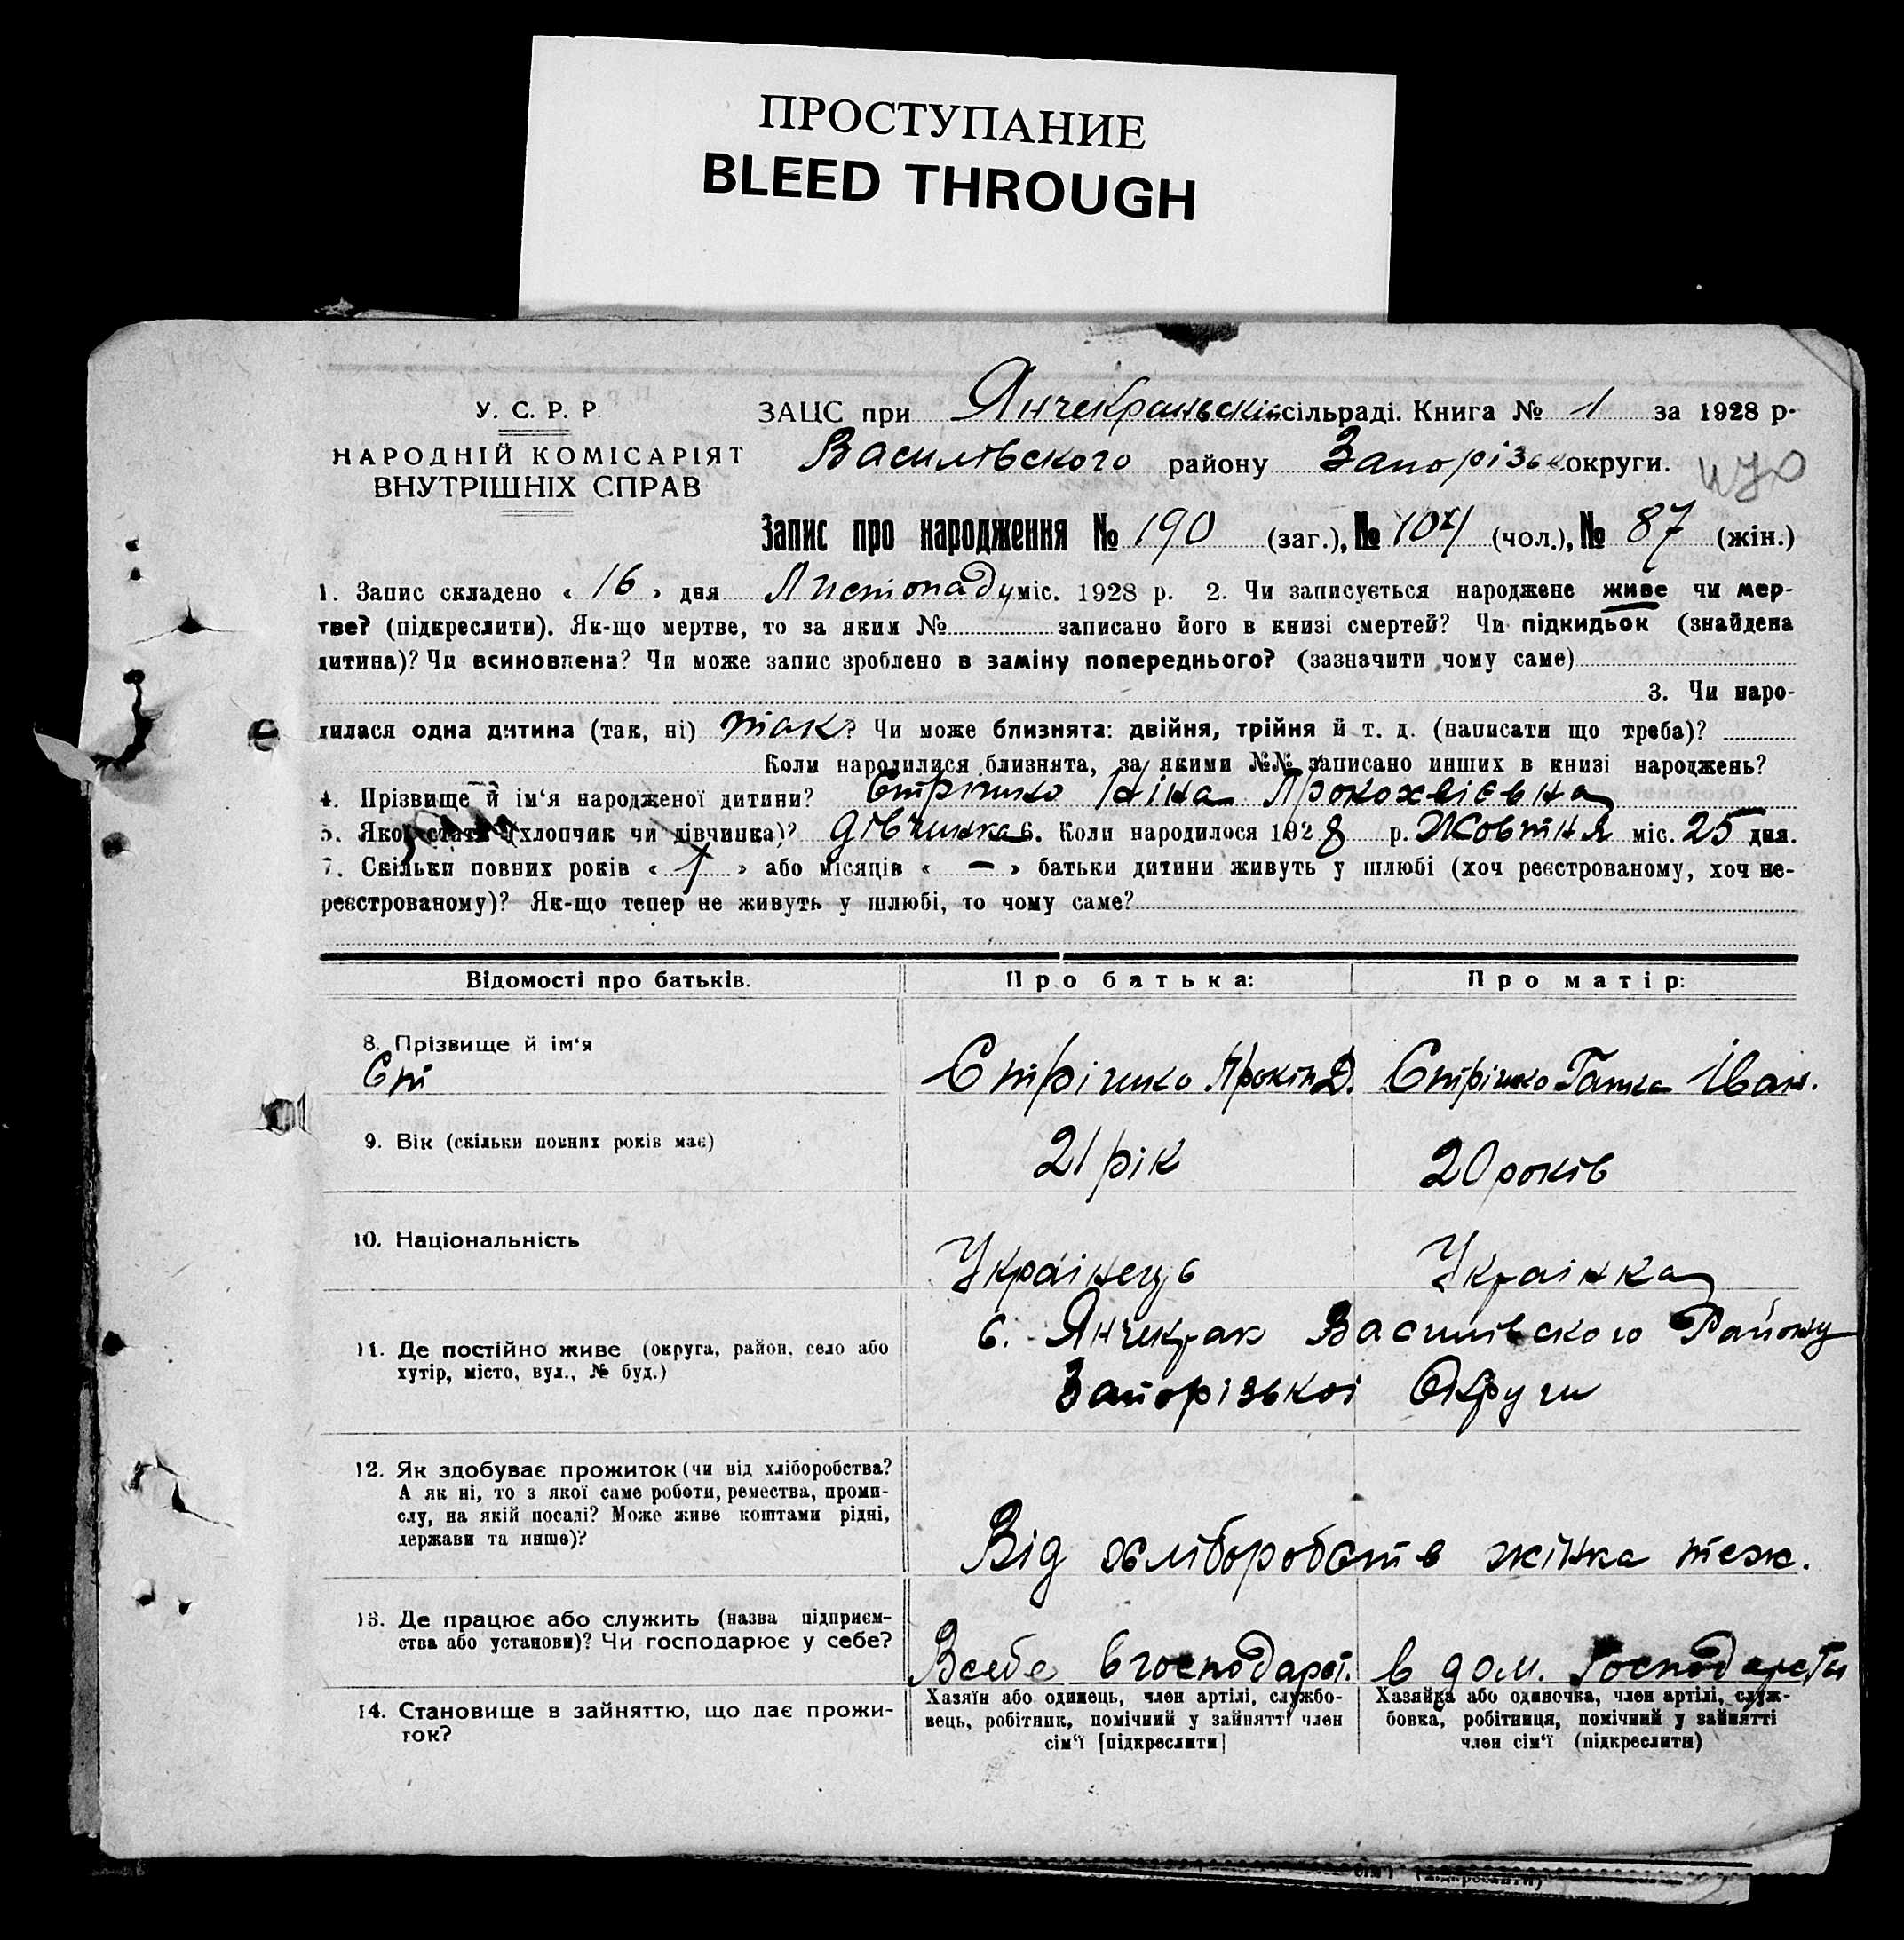 ПРОСТУПАНИЕ
BLEED THROUGH
У. С. Р. Р.
НАРОДНІЙ КОМІСАРІЯТ
ВНУТРІШНІХ СПРАВ
ЗАЦС при Янчекракській сільраді. Книга № 1 за 1928 р.
Василівського району Запорізьк округи.
Запис про народження № 190 (заг.), № (чол.), № 87 (жін.)
1. Запис складено « 16 » дня Листопаду міс. 1928 р. 2. Чи записується народжене живе чи мер-
тве? (підкреслити). Як-що мертве, то за яким № записано його в книзі смертей? Чи підкидьок (знайдена
дитина)? Чи всиновлена? Чи може запис зроблено в заміну попереднього? (зазначити чому саме)
3. Чи наро-
дилася одна дитина (так, ні) так? Чи може близнята: двійня, трійня й т. д. (написати що треба)?
Коли народилися близнята, за якими №№ записано инших в книзі народжень?
4. Прізвище й ім'я народженої дитини? Стрішко Ніна Прокохвієвна
5. Якої статі (хлопчик чи дівчинка)? дівчинка 6. Коли народилося 1928 р. Жовтня міс. 25 дня.
7. Скільки повних років « 1 » або місяців « — » батьки дитини живуть у шлюбі (хоч реєстрованому, хоч не-
реєстрованому)? Як-що тепер не живуть у шлюбі, то чому саме?
Відомості про батьків.
Про батька:
Про матір:
8. Прізвище й ім'я
Ст
Стрішко Прокіп Д.
Стрішко Ганка Іван.
9. Вік (скільки повних років має)
21 рік
20 років
10. Національність
Українець
Українка
11. Де постійно живе (округа, район, село або
хутір, місто, вул., № буд.)
с. Янчекрак Василівского Району
Запорізької Округи
12. Як здобуває прожиток (чи від хліборобства?
А як ні, то з якої саме роботи, ремества, проми-
слу, на якій посаді? Може живе коштами рідні,
держави та инше)?
Від хліборобств жінка теж.
13. Де працює або служить (назва підприєм-
ства або установи)? Чи господарює у себе?
Всебе в господарст.
в дом. Господарстві
14. Становище в зайняттю, що дає прожи-
ток?
Хазяїн або одинець, член артілі, службо-
вець, робітник, помічний у зайнятті член
сім'ї [підкреслити]
Хазяйка або одиночка, член артілі, служ-
бовка, робітниця, помічний у зайнятті
член сім'ї (підкреслити)